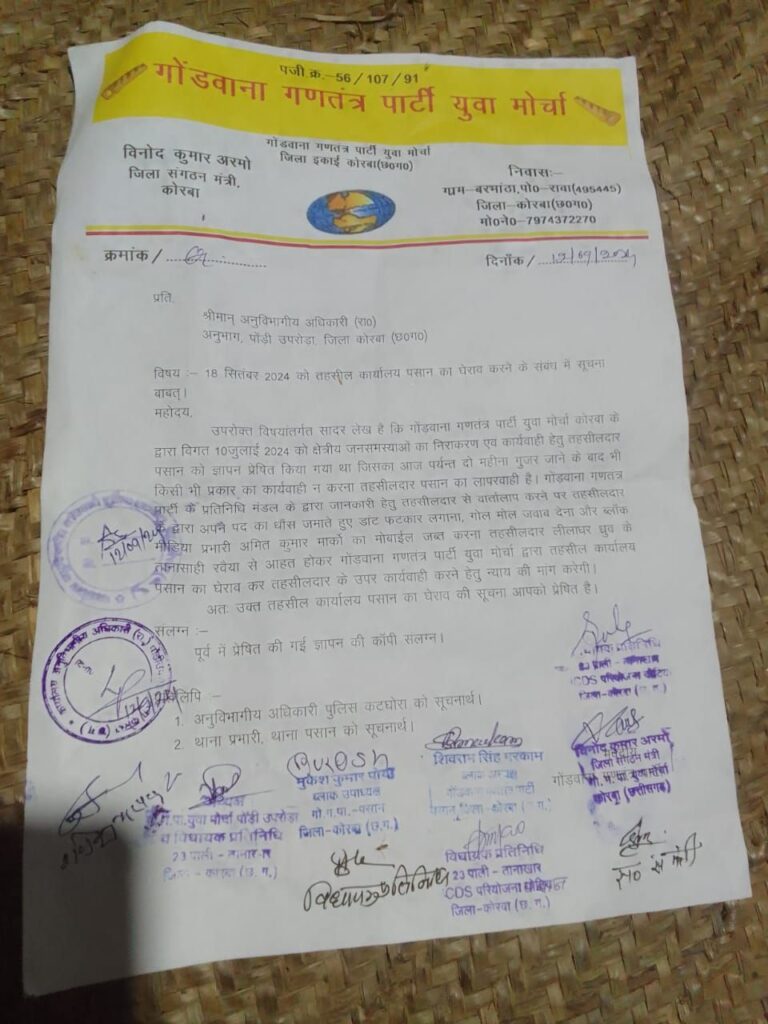 पजी क्र.–56/107/91
गोंडवाना गणतंत्र पार्टी युवा मोर्चा
गोंडवाना गणतंत्र पार्टी युवा मोर्चा
जिला इकाई कोरबा(छ०ग०)
विनोद कुमार अरमो
जिला संगठन मंत्री,
कोरबा
निवासः–
ग्राम–बरमांठा,पो०–रावा(495445)
जिला–कोरबा(छ०ग०)
मो०ने०–7974372270
क्रमांक /
दिनाँक / 12/09/2024
प्रति,
श्रीमान् अनुविभागीय अधिकारी (रा0)
अनुभाग, पोंड़ी उपरोड़ा, जिला कोरबा (छ0ग0)
विषय :– 18 सितंबर 2024 को तहसील कार्यालय पसान का घेराव करने के संबंध में सूचना
बाबत्।
महोदय,
उपरोक्त विषयांतर्गत सादर लेख है कि गोंड़वाना गणतंत्र पार्टी युवा मोर्चा कोरबा के
द्वारा विगत 10जुलाई 2024 को क्षेत्रीय जनसमस्याओं का निराकरण एवं कार्यवाही हेतु तहसीलदार
पसान को ज्ञापन प्रेषित किया गया था जिसका आज पर्यन्त दो महीना गुजर जाने के बाद भी
किसी भी प्रकार का कार्यवाही न करना तहसीलदार पसान का लापरवाही है। गोंडवाना गणतंत्र
पार्टी के प्रतिनिधि मंडल के द्वारा जानकारी हेतु तहसीलदार से वार्तालाप करने पर तहसीलदार
के द्वारा अपने पद का धौस जमाते हुए डांट फटकार लगाना, गोल मोल जवाब देना और ब्लॉक
मीडिया प्रभारी अमित कुमार मार्को का मोबाईल जब्त करना तहसीलदार लीलाधर ध्रुव के
तानासाही रवैया से आहत होकर गोंडवाना गणतंत्र पार्टी युवा मोर्चा द्वारा तहसील कार्यालय
पसान का घेराव कर तहसीलदार के उपर कार्यवाही करने हेतु न्याय की मांग करेगी।
अतः उक्त तहसील कार्यालय पसान का घेराव की सूचना आपको प्रेषित है।
12/09/24
संलग्न :–
पूर्व में प्रेषित की गई ज्ञापन की कॉपी संलग्न।
23 पाली - तानाखार
CDS परियोजना
जिला-कोरबा (छ.ग.)
लिपि :–
1. अनुविभागीय अधिकारी पुलिस कटघोरा को सूचनार्थ।
2. थाना प्रभारी, थाना पसान को सूचनार्थ।
मुकेश कुमार पोर्या
ब्लाक उपाध्यक्ष
गो.ग.पा.-पसान
जिला-कोरबा (छ.ग.)
शिवराम सिंह मरकाम
जिला - कोरबा (छ.ग.)
विनोद कुमार अरमो
जिला संगठन मंत्री
गो.ग.पा. युवा मोर्चा
कोरबा (छत्तीसगढ़)
अध्यक्ष
पा.युवा मोर्चा पोंड़ी उपरोड़ा
विधायक प्रतिनिधि
23 पाली - तानाखार
जिला - कोरबा (छ.ग.)
विधायक प्रतिनिधि
विधायक प्रतिनिधि
23 पाली - तानाखार
CDS परियोजना
जिला-कोरबा (छ.ग.)